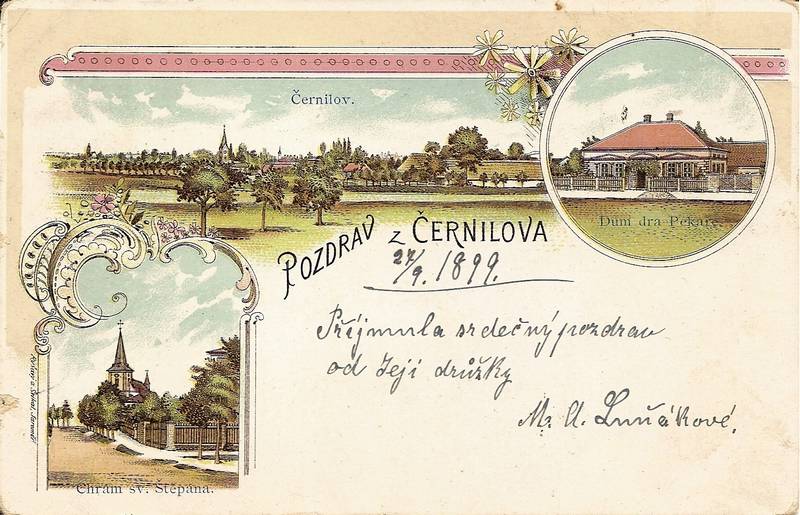 Černilov.
Dům dra Pekaře.
POZDRAV Z ČERNILOVA
27/9. 1899.
Přijmula srdečný pozdrav
od Její družky
M. A. Luňákové.
Chrám sv. Štěpána.